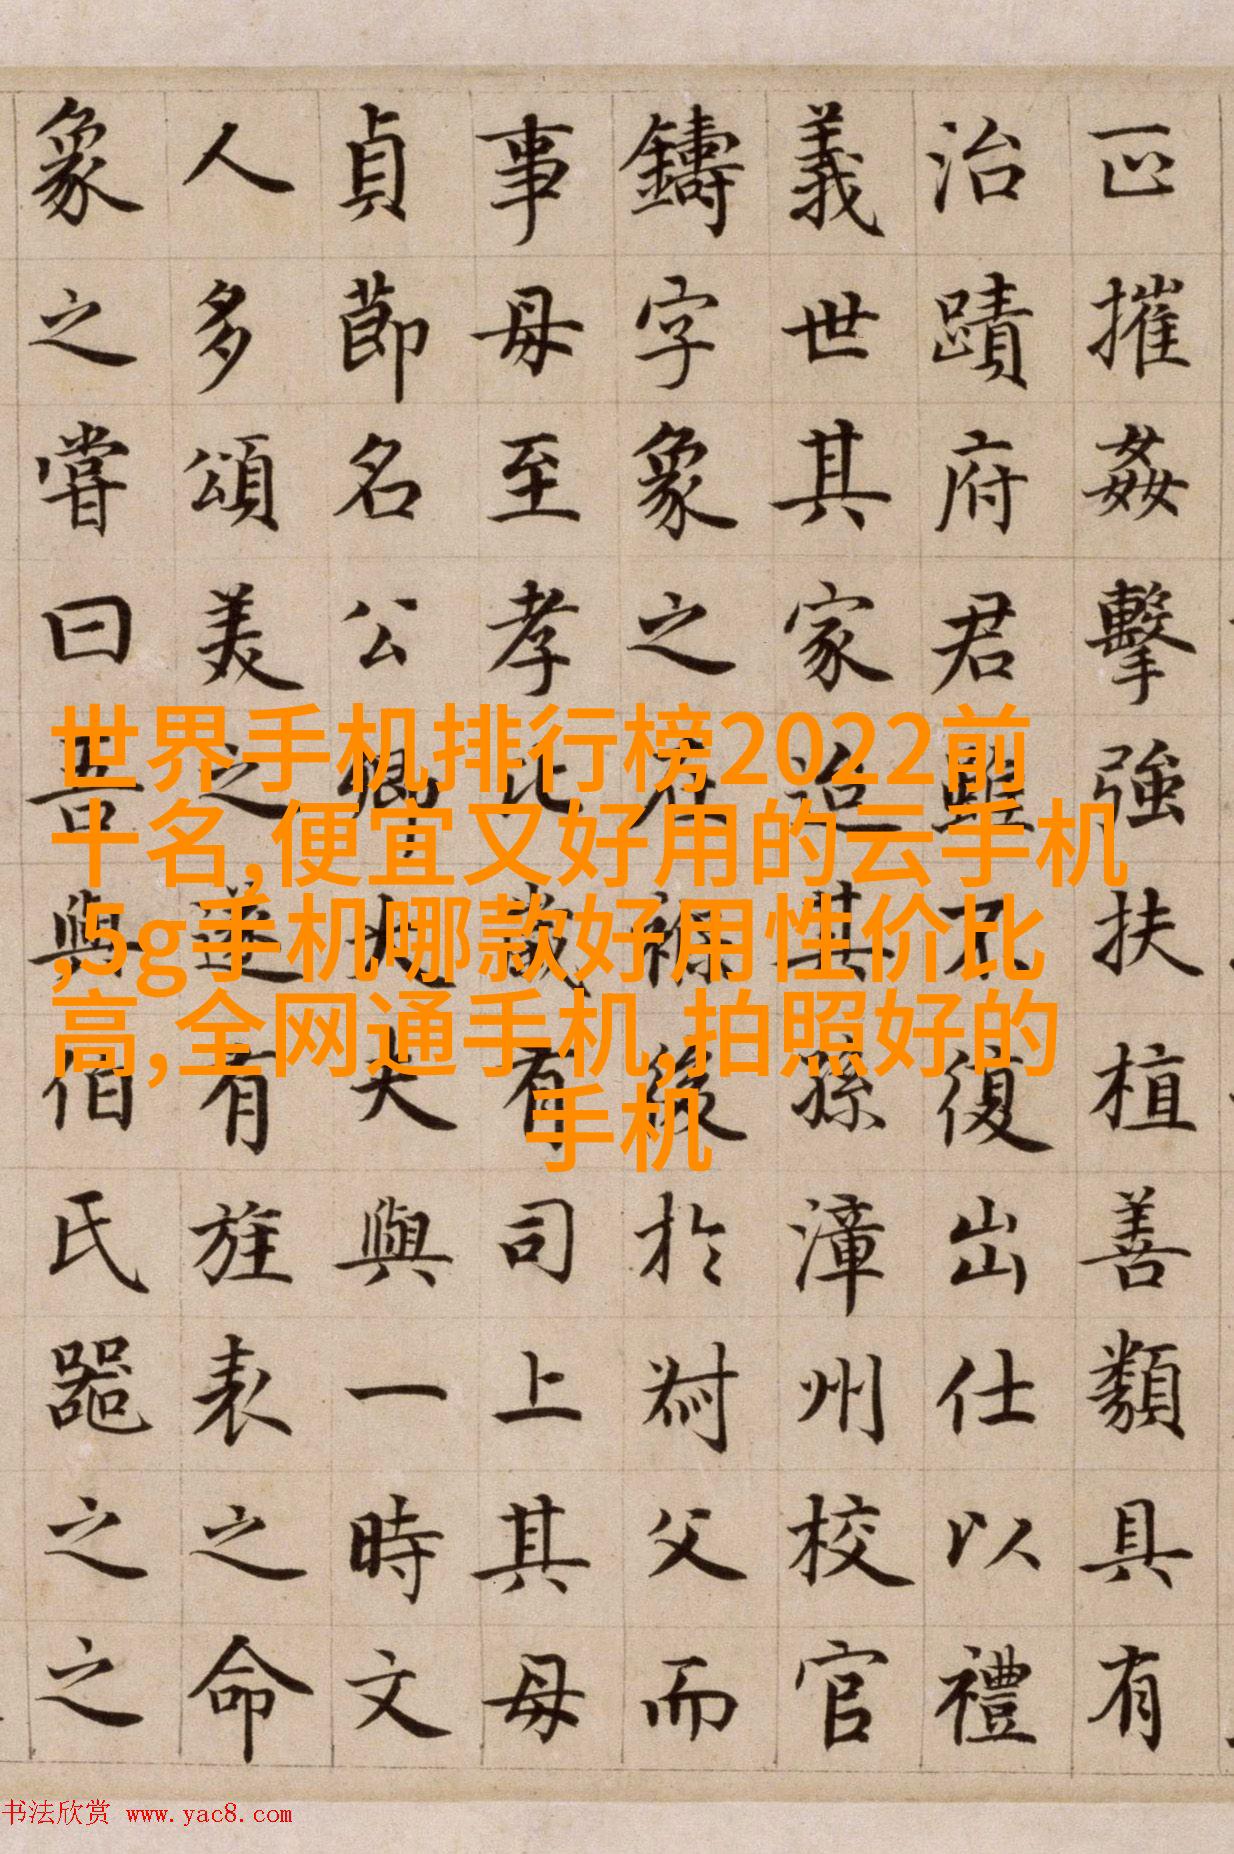 正摧姦擊強扶植善類具有
治蹟府君不復出仕以禮
義世其家迨其孫漳州校官
鑄字象之在後於父而
事母至孝比歲有司上其母
貞節名公卿大夫與一時文
人多頌美之遂有旌表之命
象之嘗曰吾與伯氏噩之之
世界手机排行榜2022前
十名,便宜又好用的云手机
,5g手机哪款好用性价比
高,全网通手机,拍照好的
手机
书法欣赏 www.yac8.com